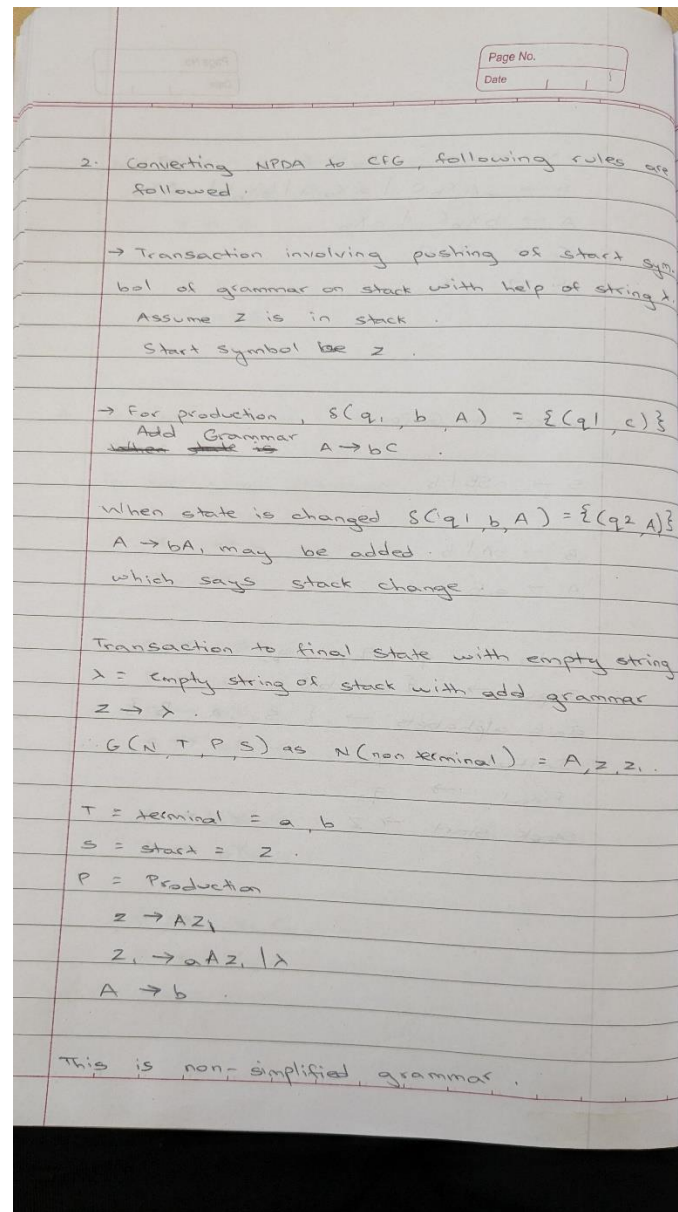 Page No.
Date
2. Converting NPDA to CFG, following rules are
followed.
→ Transaction involving pushing of start sym-
bol of grammar on stack with help of string λ.
Assume Z is in stack.
Start symbol be Z.
→ For production, δ(q1, b, A) = {(q1, c)}
Add Grammar
When state is A → bC.
When state is changed δ(q1, b, A) = {(q2, A)}
A → bA, may be added.
which says stack change.
Transaction to final state with empty string
λ = empty string of stack with add grammar
Z → λ.
G(N, T, P, S) as N(non terminal) = A, Z, Z1.
T = terminal = a, b
S = start = Z.
P = Production
Z → AZ1
Z1 → aAZ1 | λ
A → b.
This is non-simplified grammar.